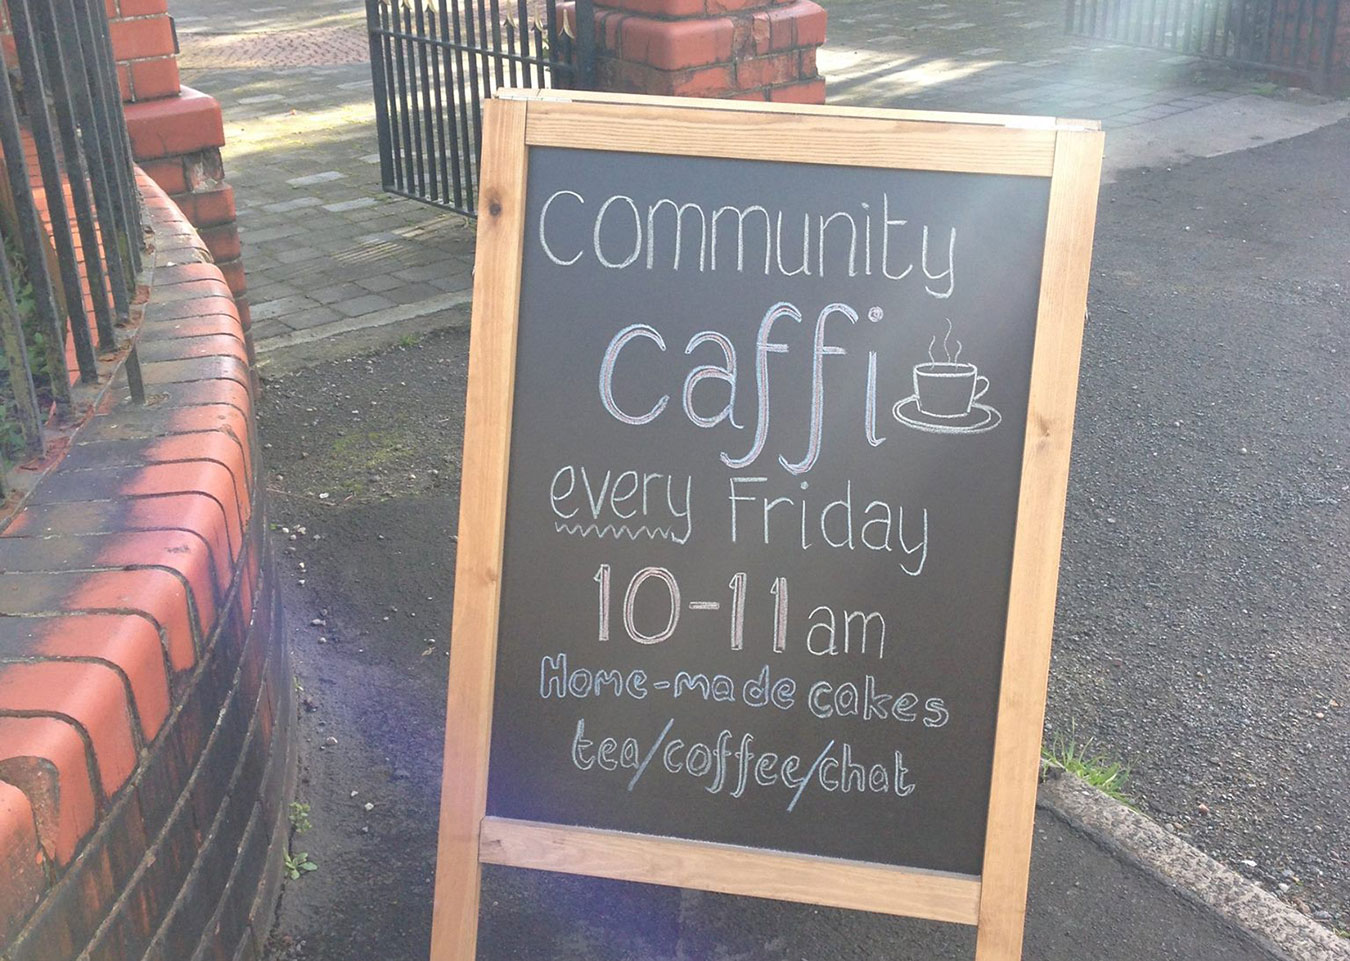 Community
caffi
every Friday
10-11am
Home-made cakes
tea/coffee/chat